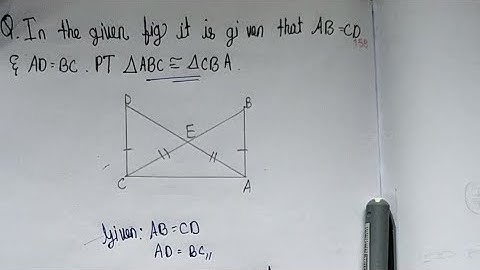 Q. In the given fig it is given that AB=CD
158
& AD=BC. PT △ABC ≅ △CBA.
D
B
E
C
A
Given: AB=CD
AD=BC,,